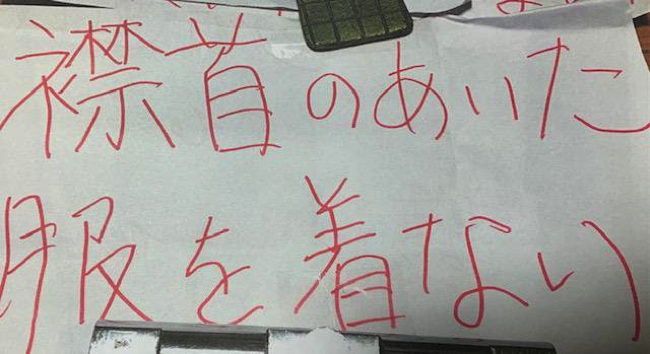 襟首のあいた
服を着ない